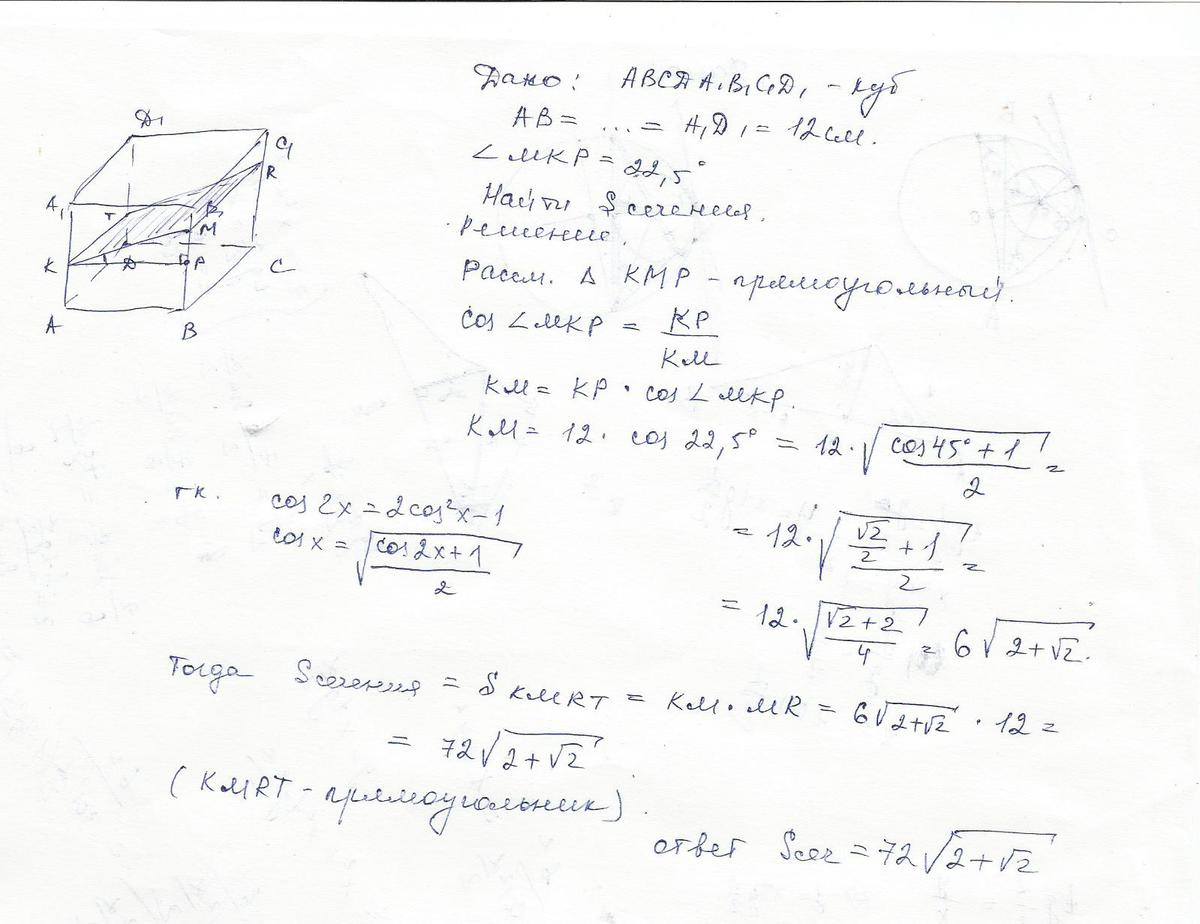 Дано: ABCDA₁B₁C₁D₁ - куб
AB = ... = A₁D₁ = 12 см.
∠MKP = 22,5°
Найти S сечения.
Решение.
Рассм. Δ KMP - прямоугольный.
cos ∠MKP = KP/KM
KM = KP · cos ∠MKP.
KM = 12 · cos 22,5° = 12 · √((cos 45° + 1)/2) =
тк. cos 2x = 2cos²x - 1
cos x = √((cos 2x + 1)/2)
= 12 · √((√2/2 + 1)/2) =
= 12 · √((√2 + 2)/4) = 6√(2+√2).
Тогда Sсечения = S KMRT = KM · MR = 6√(2+√2) · 12 =
= 72√(2+√2)
(KMRT - прямоугольник).
ответ Sсеч = 72√(2+√2)
D₁
C₁
R
A₁
T
B₁
M
K
D
P
C
A
B